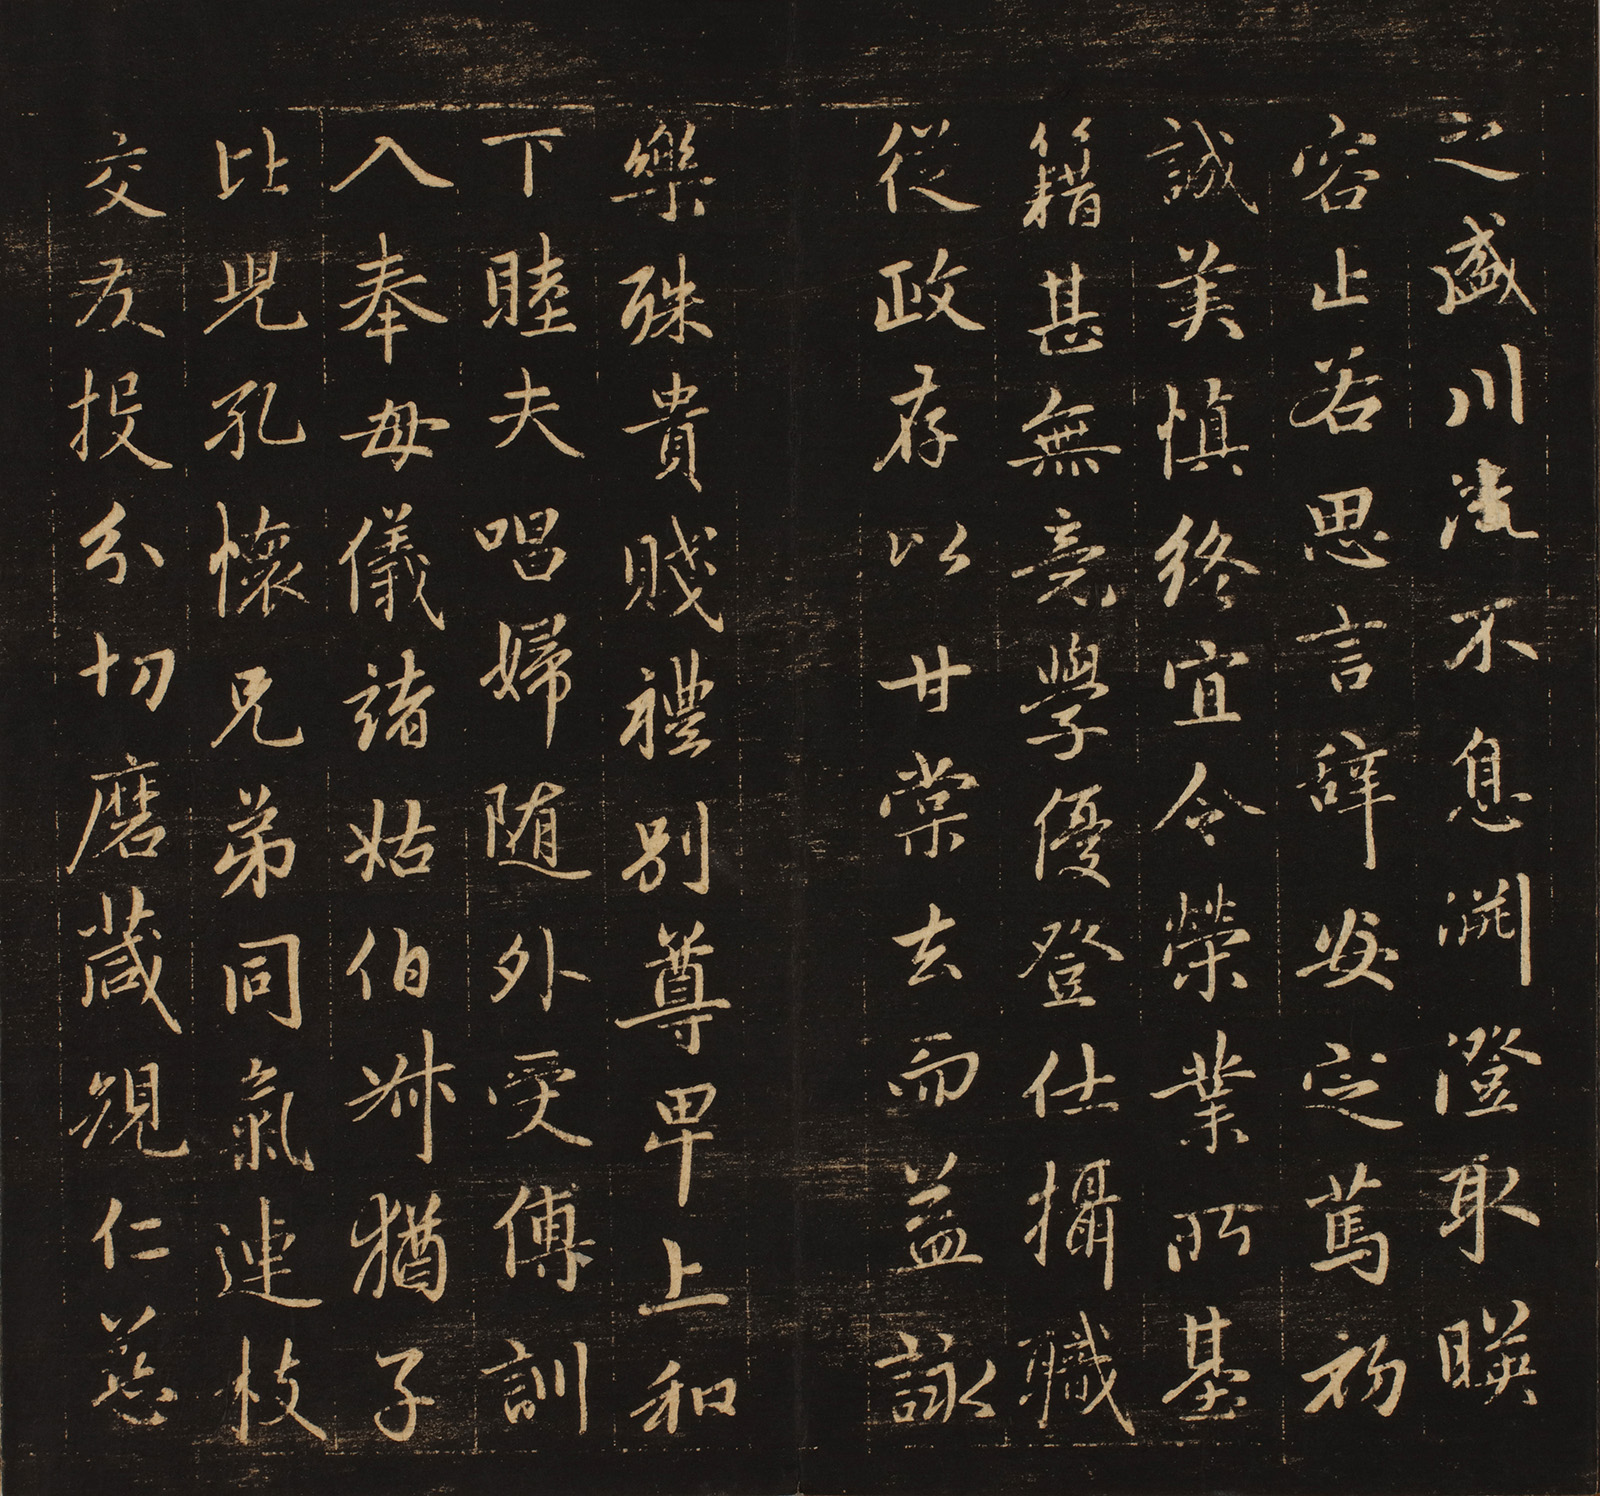 之盛川流不息渊澄取暎
容止若思言辞安定篤初
誠美慎終宜令榮業所基
籍甚無竟學優登仕攝職
從政存以甘棠去而益詠
樂殊貴賤禮別尊卑上和
下睦夫唱婦随外受傅訓
入奉母儀諸姑伯叔猶子
比兒孔懷兄弟同氣連枝
交友投分切磨葴規仁慈